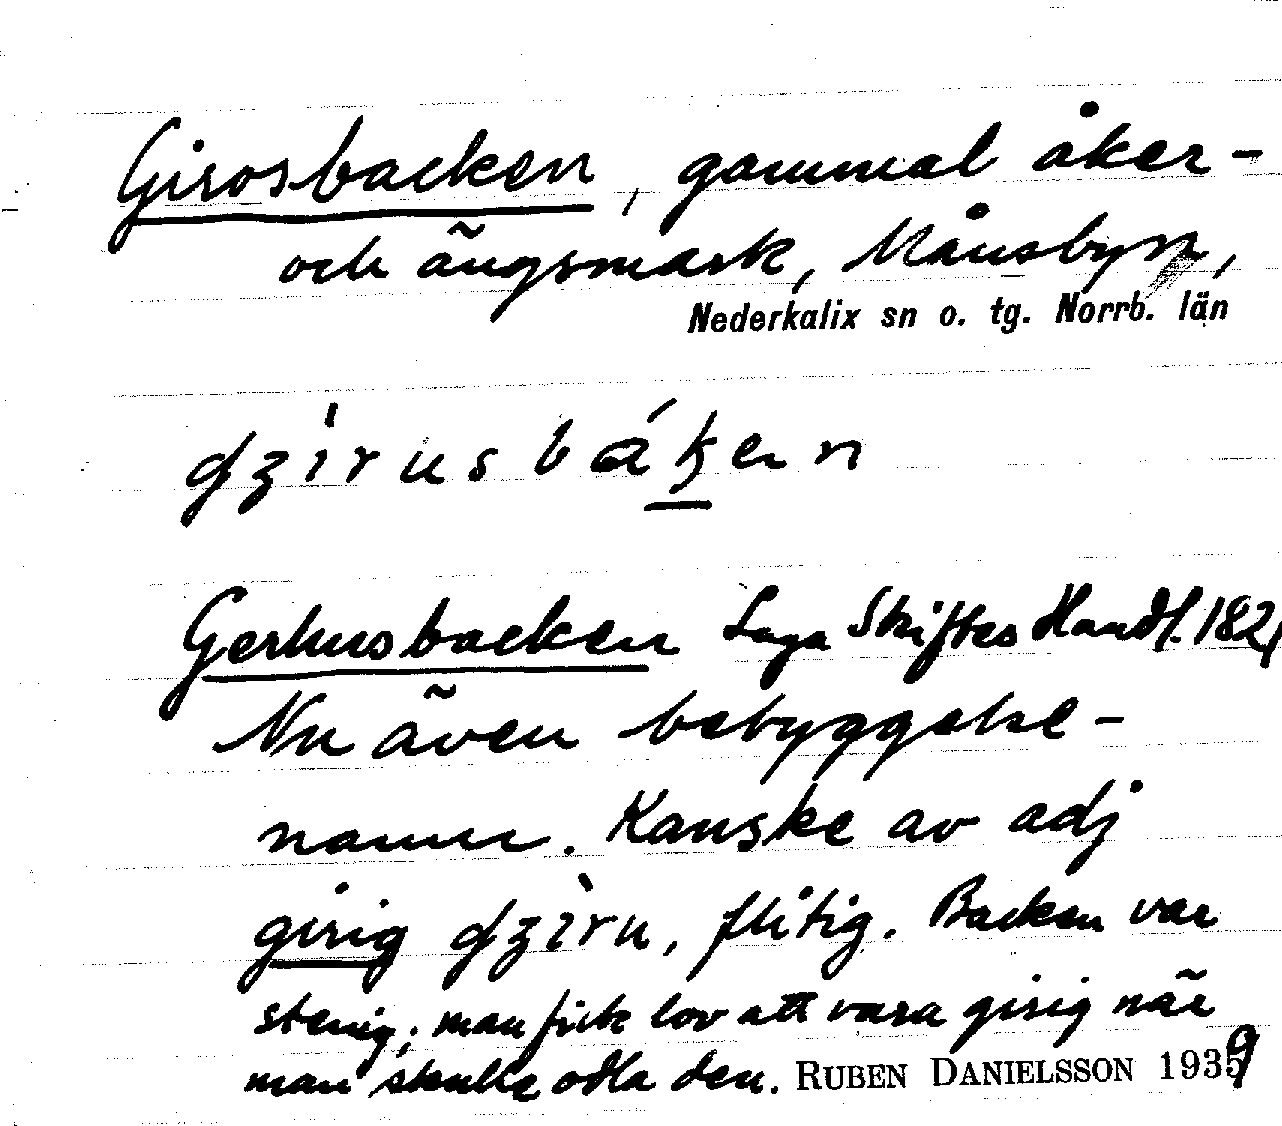 Girosbacken, gammal åker-
och ängsmark, Månsbyn,
Nederkalix sn o. tg. Norrb. län
dʒìrusbáken
Gerhusbacken Laga Skiftes Handl. 1821
Nu även bebyggelse-
namn. Kanske av adj
girig dʒìru, flitig. Backen var
stenig; man fick lov att vara girig när
man skulle odla den. RUBEN DANIELSSON 1939